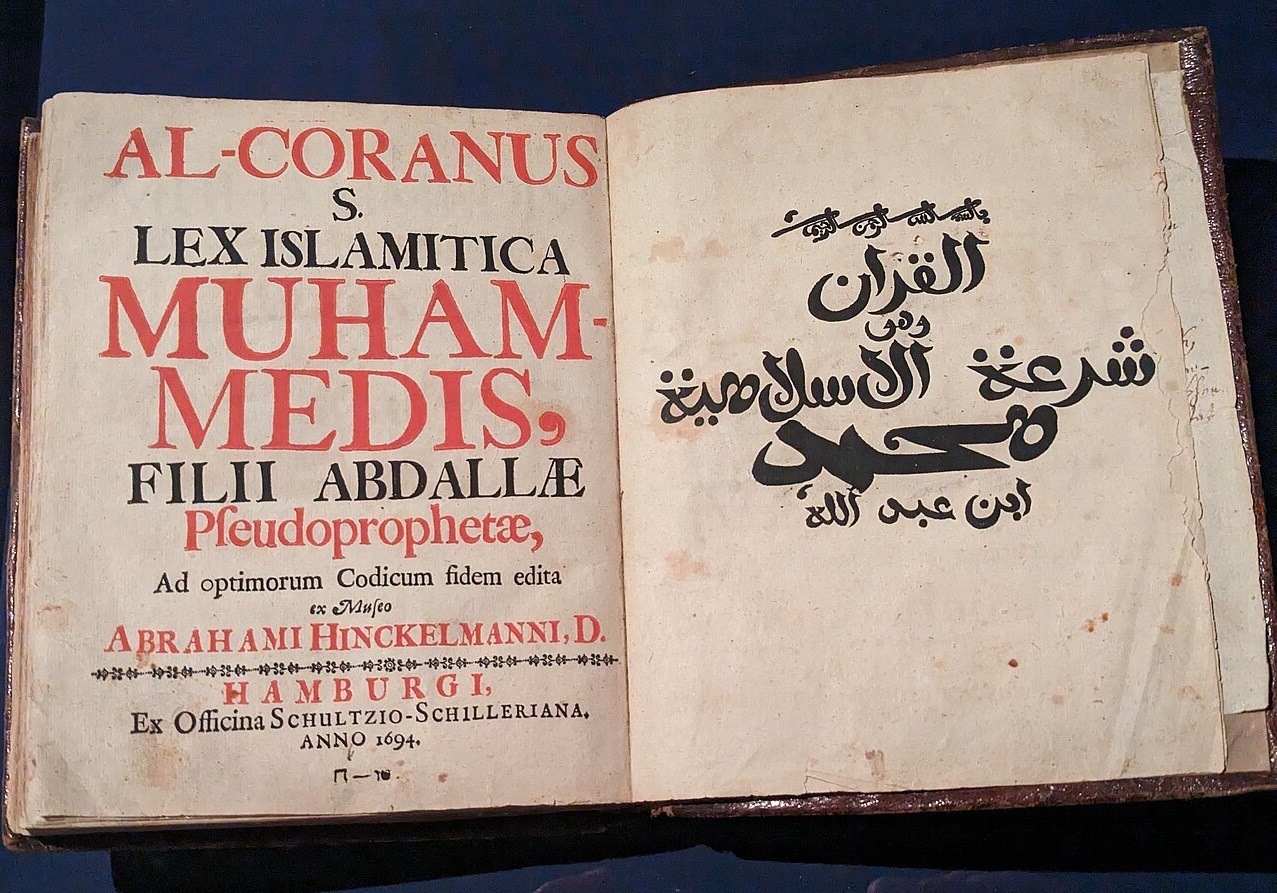 AL-CORANUS
S.
LEX ISLAMITICA
MUHAM-
MEDIS,
FILII ABDALLÆ
Pſeudoprophetæ,
Ad optimorum Codicum fidem edita
ex Muſeo
ABRAHAMI HINCKELMANNI, D.
HAMBURGI,
Ex Officina SCHULTZIO-SCHILLERIANA.
ANNO 1694.
بسم الله الرحمن الرحيم
القرآن
وهو
شرعة الاسلامية
محمد
ابن عبد الله